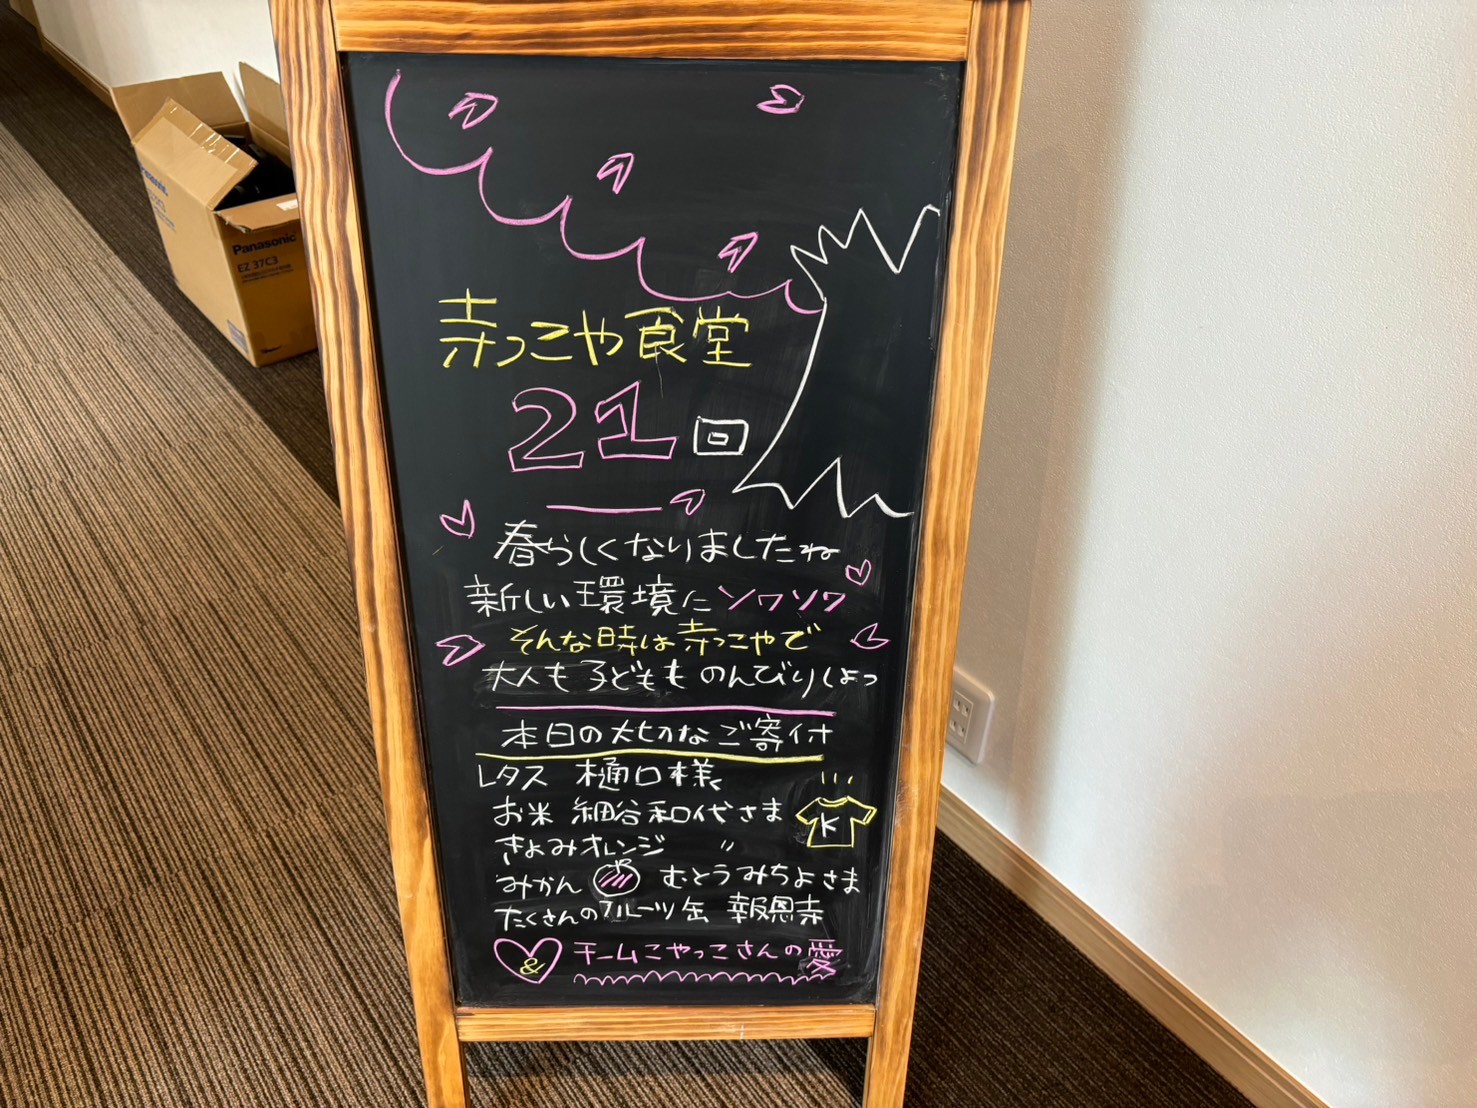 寺っこや食堂
21回
春らしくなりましたね
新しい環境にソワソワ
そんな時は寺っこやで
大人も子どもも のんびりしよっ
本日の大切なご寄付
レタス 樋口様
お米 細谷和代さま
K
きよみオレンジ 〃
みかん むとうみちよさま
たくさんのフルーツ缶 報恩寺
& チームこやっこさんの愛
Panasonic
EZ 37C3
Panasonic